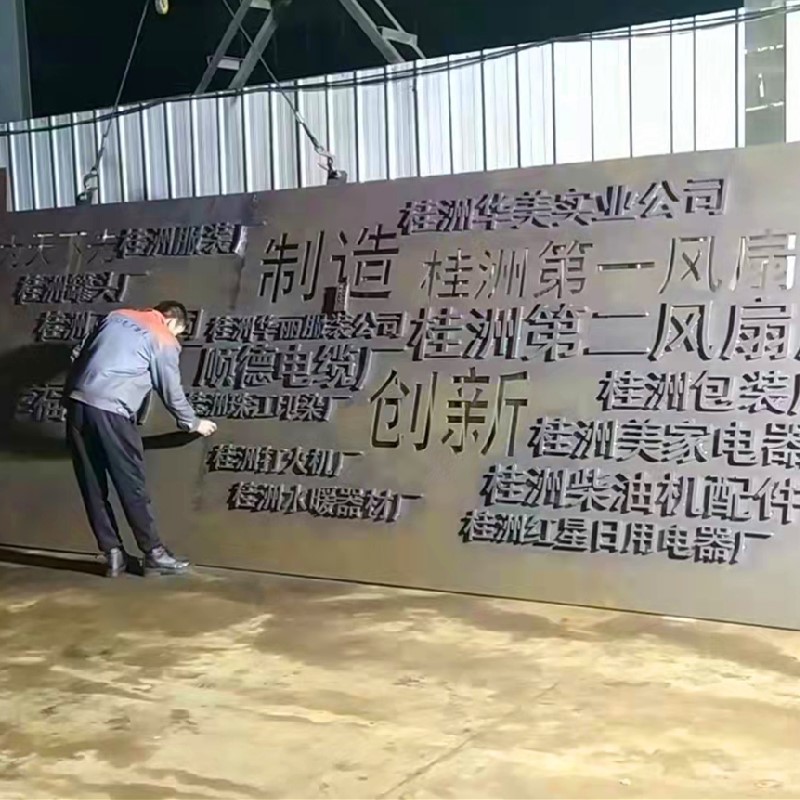 桂洲华美实业公司
为天下先
桂洲服装厂
制造
桂洲第一风扇
桂洲罐头厂
桂洲
桂洲华丽服装公司
桂洲第二风扇
顺德电缆厂
创新
桂洲包装厂
桂洲美家电器
桂洲打火机厂
桂洲柴油机配件
桂洲水暖器材厂
桂洲红星日用电器厂